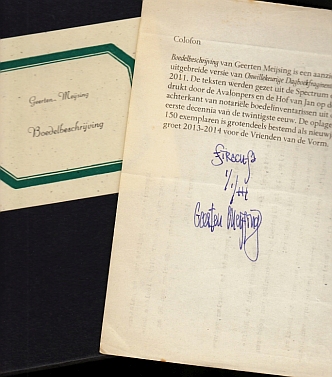 Geerten Meijsing
Boedelbeschrijving
Colofon
Boedelbeschrijving van Geerten Meijsing is een aanz
uitgebreide versie van Onwillekeurige Dagboekfragmente
2011. De teksten werden gezet uit de Spectrum e
drukt door de Avalonpers en de Hof van Jan op d
achterkant van notariële boedelinventarissen uit
eerste decennia van de twintigste eeuw. De oplage
150 exemplaren is grotendeels bestemd als nieuwj
groet 2013-2014 voor de Vrienden van de Vorm.
Geerten Meijsing